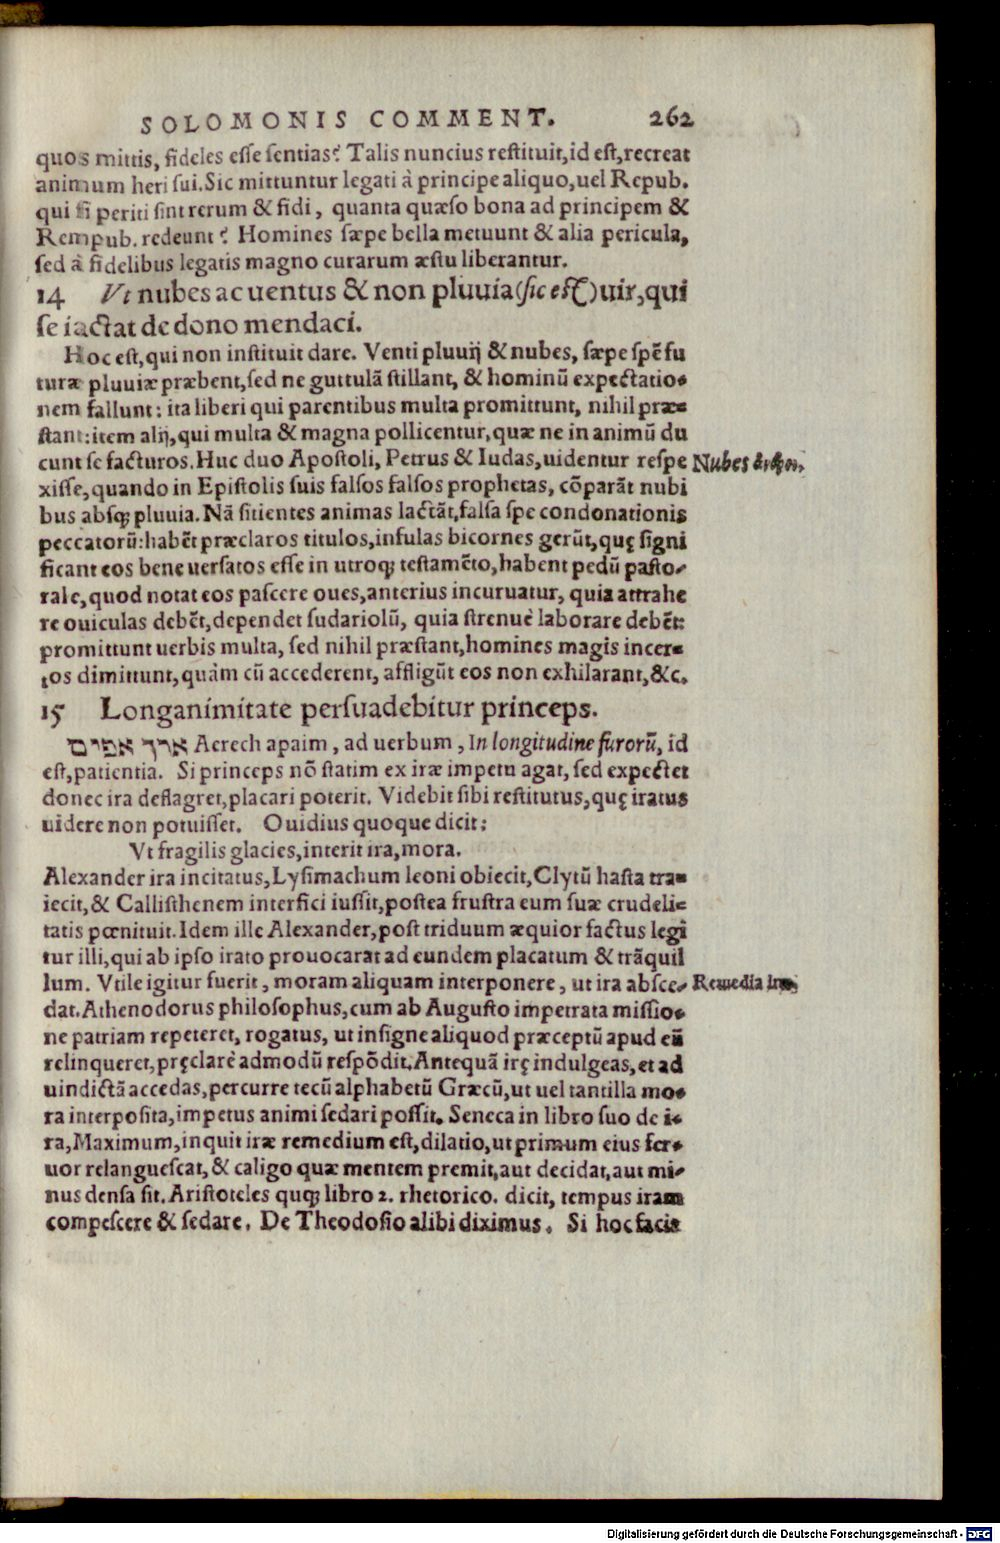 SOLOMONIS COMMENT. 262
quos mittis, fideles esse sentias? Talis nuncius restituit, id est, recreat
animum heri sui. Sic mittuntur legati à principe aliquo, uel Repub.
qui si periti sint rerum & fidi, quanta quæso bona ad principem &
Rempub. redeunt? Homines sæpe bella metuunt & alia pericula,
sed à fidelibus legatis magno curarum æstu liberantur.
14 Vt nubes ac uentus & non pluuia (sic est) uir, qui
se iactat de dono mendaci.
Hoc est, qui non instituit dare. Venti pluuij & nubes, sæpe spē fu
turæ pluuiæ præbent, sed ne guttulā stillant, & hominū expectatio-
nem fallunt: ita liberi qui parentibus multa promittunt, nihil præ-
stant: item alij, qui multa & magna pollicentur, quæ ne in animū du
cunt se facturos. Huc duo Apostoli, Petrus & Iudas, uidentur respe
Nubes
xisse, quando in Epistolis suis falsos falsos prophetas, cōparāt nubi
bus absq; pluuia. Nā sitientes animas lactāt, falsa spe condonationis
peccatorū: habēt præclaros titulos, infulas bicornes gerūt, quę signi
ficant eos bene uersatos esse in utroq; testamēto, habent pedū pasto-
rale, quod notat eos pascere oues, anterius incuruatur, quia attrahe
re ouiculas debēt, dependet sudariolū, quia strenuè laborare debēt:
promittunt uerbis multa, sed nihil præstant, homines magis incer-
tos dimittunt, quàm cū accederent, affligūt eos non exhilarant, &c.
15 Longanimitate persuadebitur princeps.
ארך אפים Aerech apaim, ad uerbum, In longitudine furorū, id
est, patientia. Si princeps nō statim ex iræ impetu agat, sed expectet
donec ira deflagret, placari poterit. Videbit sibi restitutus, quę iratus
uidere non potuisset. Ouidius quoque dicit:
Vt fragilis glacies, interit ira, mora.
Alexander ira incitatus, Lysimachum leoni obiecit, Clytū hasta tra-
iecit, & Callisthenem interfici iussit, postea frustra eum suæ crudeli-
tatis pœnituit. Idem ille Alexander, post triduum æquior factus legi
tur illi, qui ab ipso irato prouocarat ad eundem placatum & trāquil
lum. Vtile igitur fuerit, moram aliquam interponere, ut ira absce-
Remedia iræ.
dat. Athenodorus philosophus, cum ab Augusto impetrata missio-
ne patriam repeteret, rogatus, ut insigne aliquod præceptū apud eū
relinqueret, pręclarè admodū respōdit. Antequā irę indulgeas, et ad
uindictā accedas, percurre tecū alphabetū Græcū, ut uel tantilla mo-
ra interposita, impetus animi sedari possit. Seneca in libro suo de i-
ra, Maximum, inquit iræ remedium est, dilatio, ut primum eius fer-
uor relanguescat, & caligo quæ mentem premit, aut decidat, aut mi-
nus densa sit. Aristoteles quoq; libro 2. rhetorico. dicit, tempus iram
compescere & sedare. De Theodosio alibi diximus. Si hoc facit
Digitalisierung gefördert durch die Deutsche Forschungsgemeinschaft - DFG